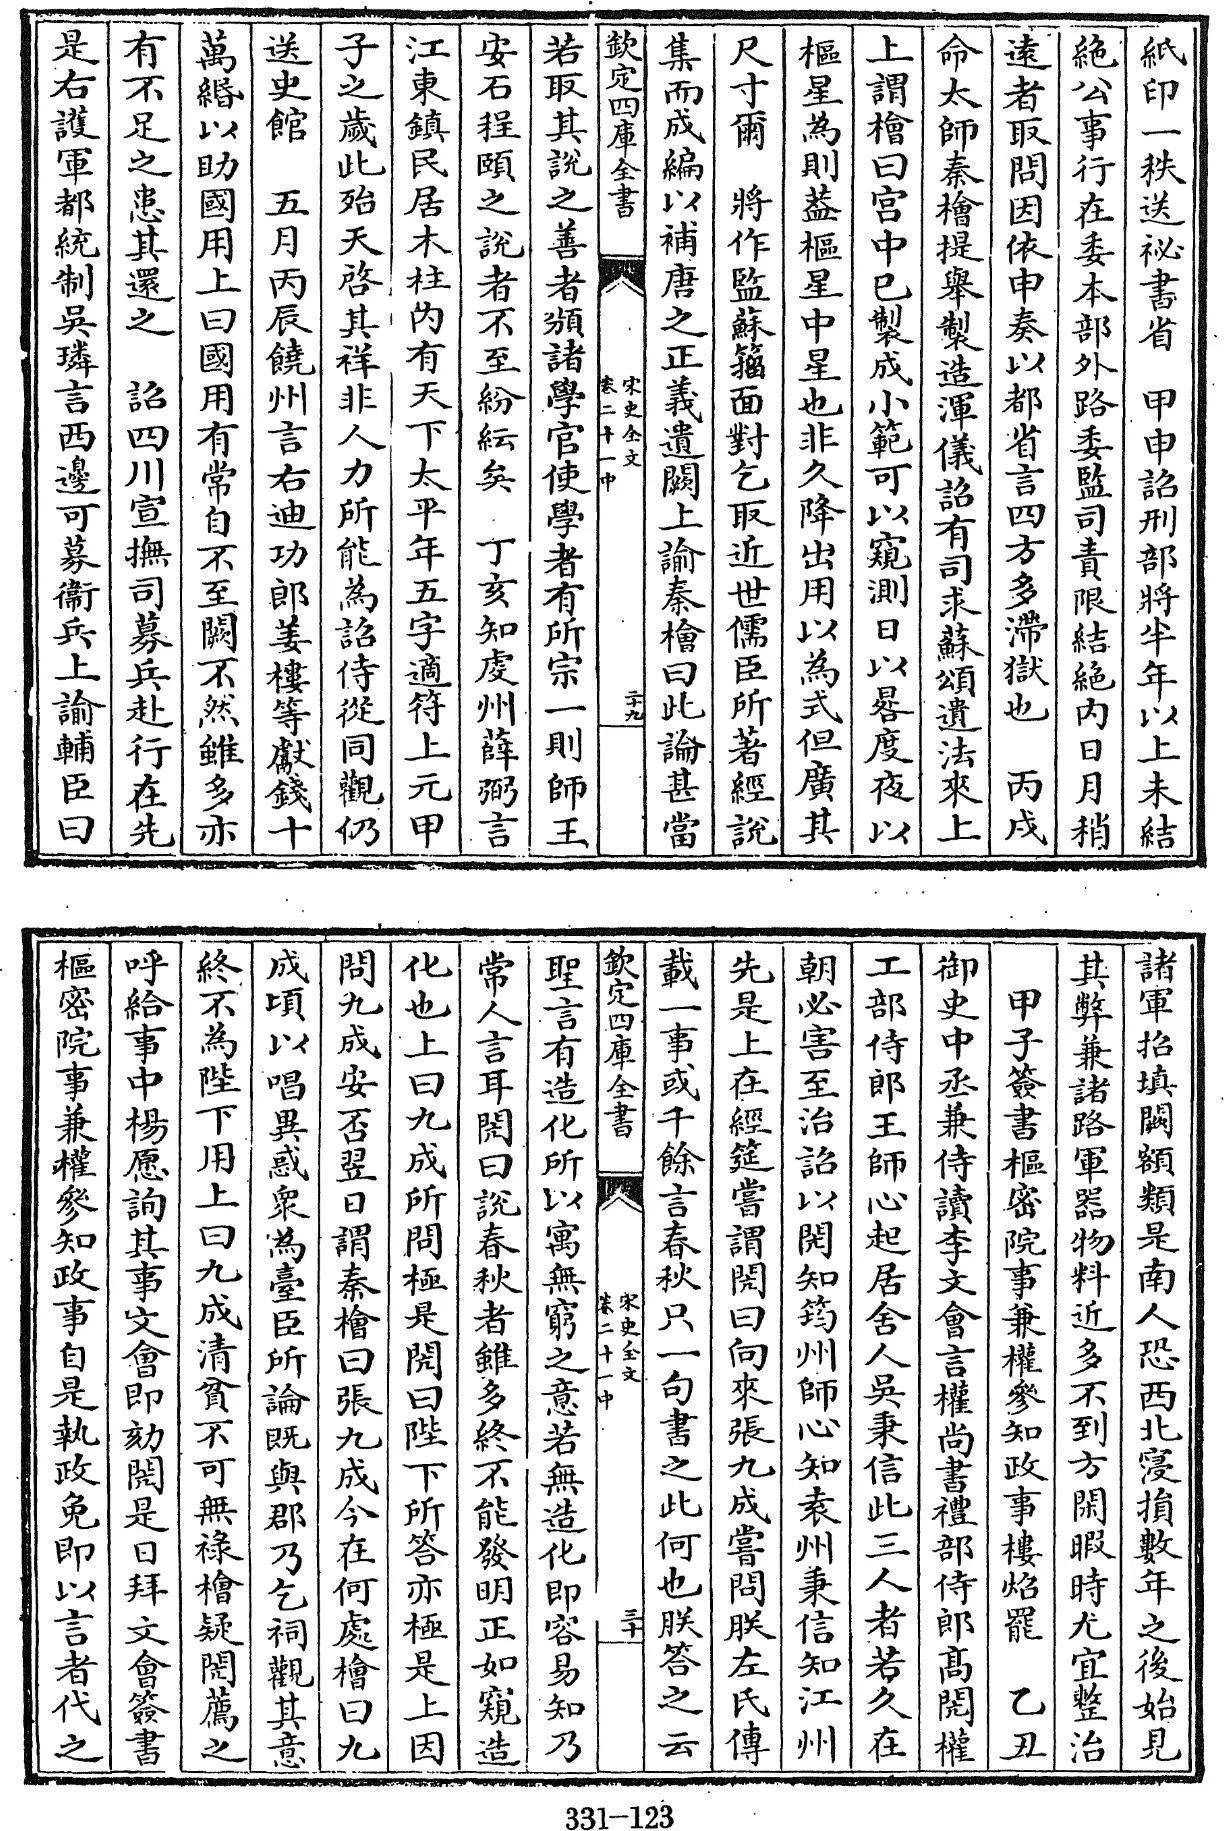 紙印一秩送祕書省　甲申詔刑部將半年以上未結
絶公事行在委本部外路委監司責限結絶内日月稍
逺者取問因依申奏以都省言四方多滯獄也　丙戌
命太師秦檜提舉製造渾儀詔有司求蘇頌遺法來上
上謂檜曰宫中已製成小範可以窺測日以晷度夜以
樞星為則葢樞星中星也非久降出用以為式但廣其
尺寸爾　將作監蘇籀面對乞取近世儒臣所著經説
集而成編以補唐之正義遺闕上諭秦檜曰此論甚當
欽定四庫全書
宋史全文
卷二十一中
二十九
若取其説之善者頒諸學官使學者有所宗一則師王
安石程頤之説者不至紛紜矣　丁亥知䖍州薛弼言
江東鎮民居木柱内有天下太平年五字適符上元甲
子之歲此殆天啓其祥非人力所能為詔侍從同觀仍
送史館　五月丙辰饒州言右迪功郎姜樓等獻錢十
萬緡以助國用上曰國用有常自不至闕不然雖多亦
有不足之患其還之　詔四川宣撫司募兵赴行在先
是右護軍都統制吳璘言西邊可募衛兵上諭輔臣曰
諸軍招填闕額類是南人恐西北寖損數年之後始見
其弊兼諸路軍器物料近多不到方閑暇時尤宜整治
甲子簽書樞密院事兼權參知政事樓炤罷　乙丑
御史中丞兼侍讀李文會言權尚書禮部侍郎髙閌權
工部侍郎王師心起居舍人吳秉信此三人者若久在
朝必害至治詔以閌知筠州師心知袁州秉信知江州
先是上在經筵嘗謂閌曰向來張九成嘗問朕左氏傳
載一事或千餘言春秋只一句書之此何也朕答之云
欽定四庫全書
宋史全文
卷二十一中
三十
聖言有造化所以寓無窮之意若無造化即容易知乃
常人言耳閌曰説春秋者雖多終不能發明正如窺造
化也上曰九成所問極是閌曰陛下所答亦極是上因
問九成安否翌日謂秦檜曰張九成今在何處檜曰九
成頃以唱異惑衆為臺臣所論既與郡乃乞祠觀其意
終不為陛下用上曰九成清貧不可無祿檜疑閌薦之
呼給事中楊愿詢其事文會即劾閌是日拜文會簽書
樞密院事兼權參知政事自是執政免即以言者代之
331-123